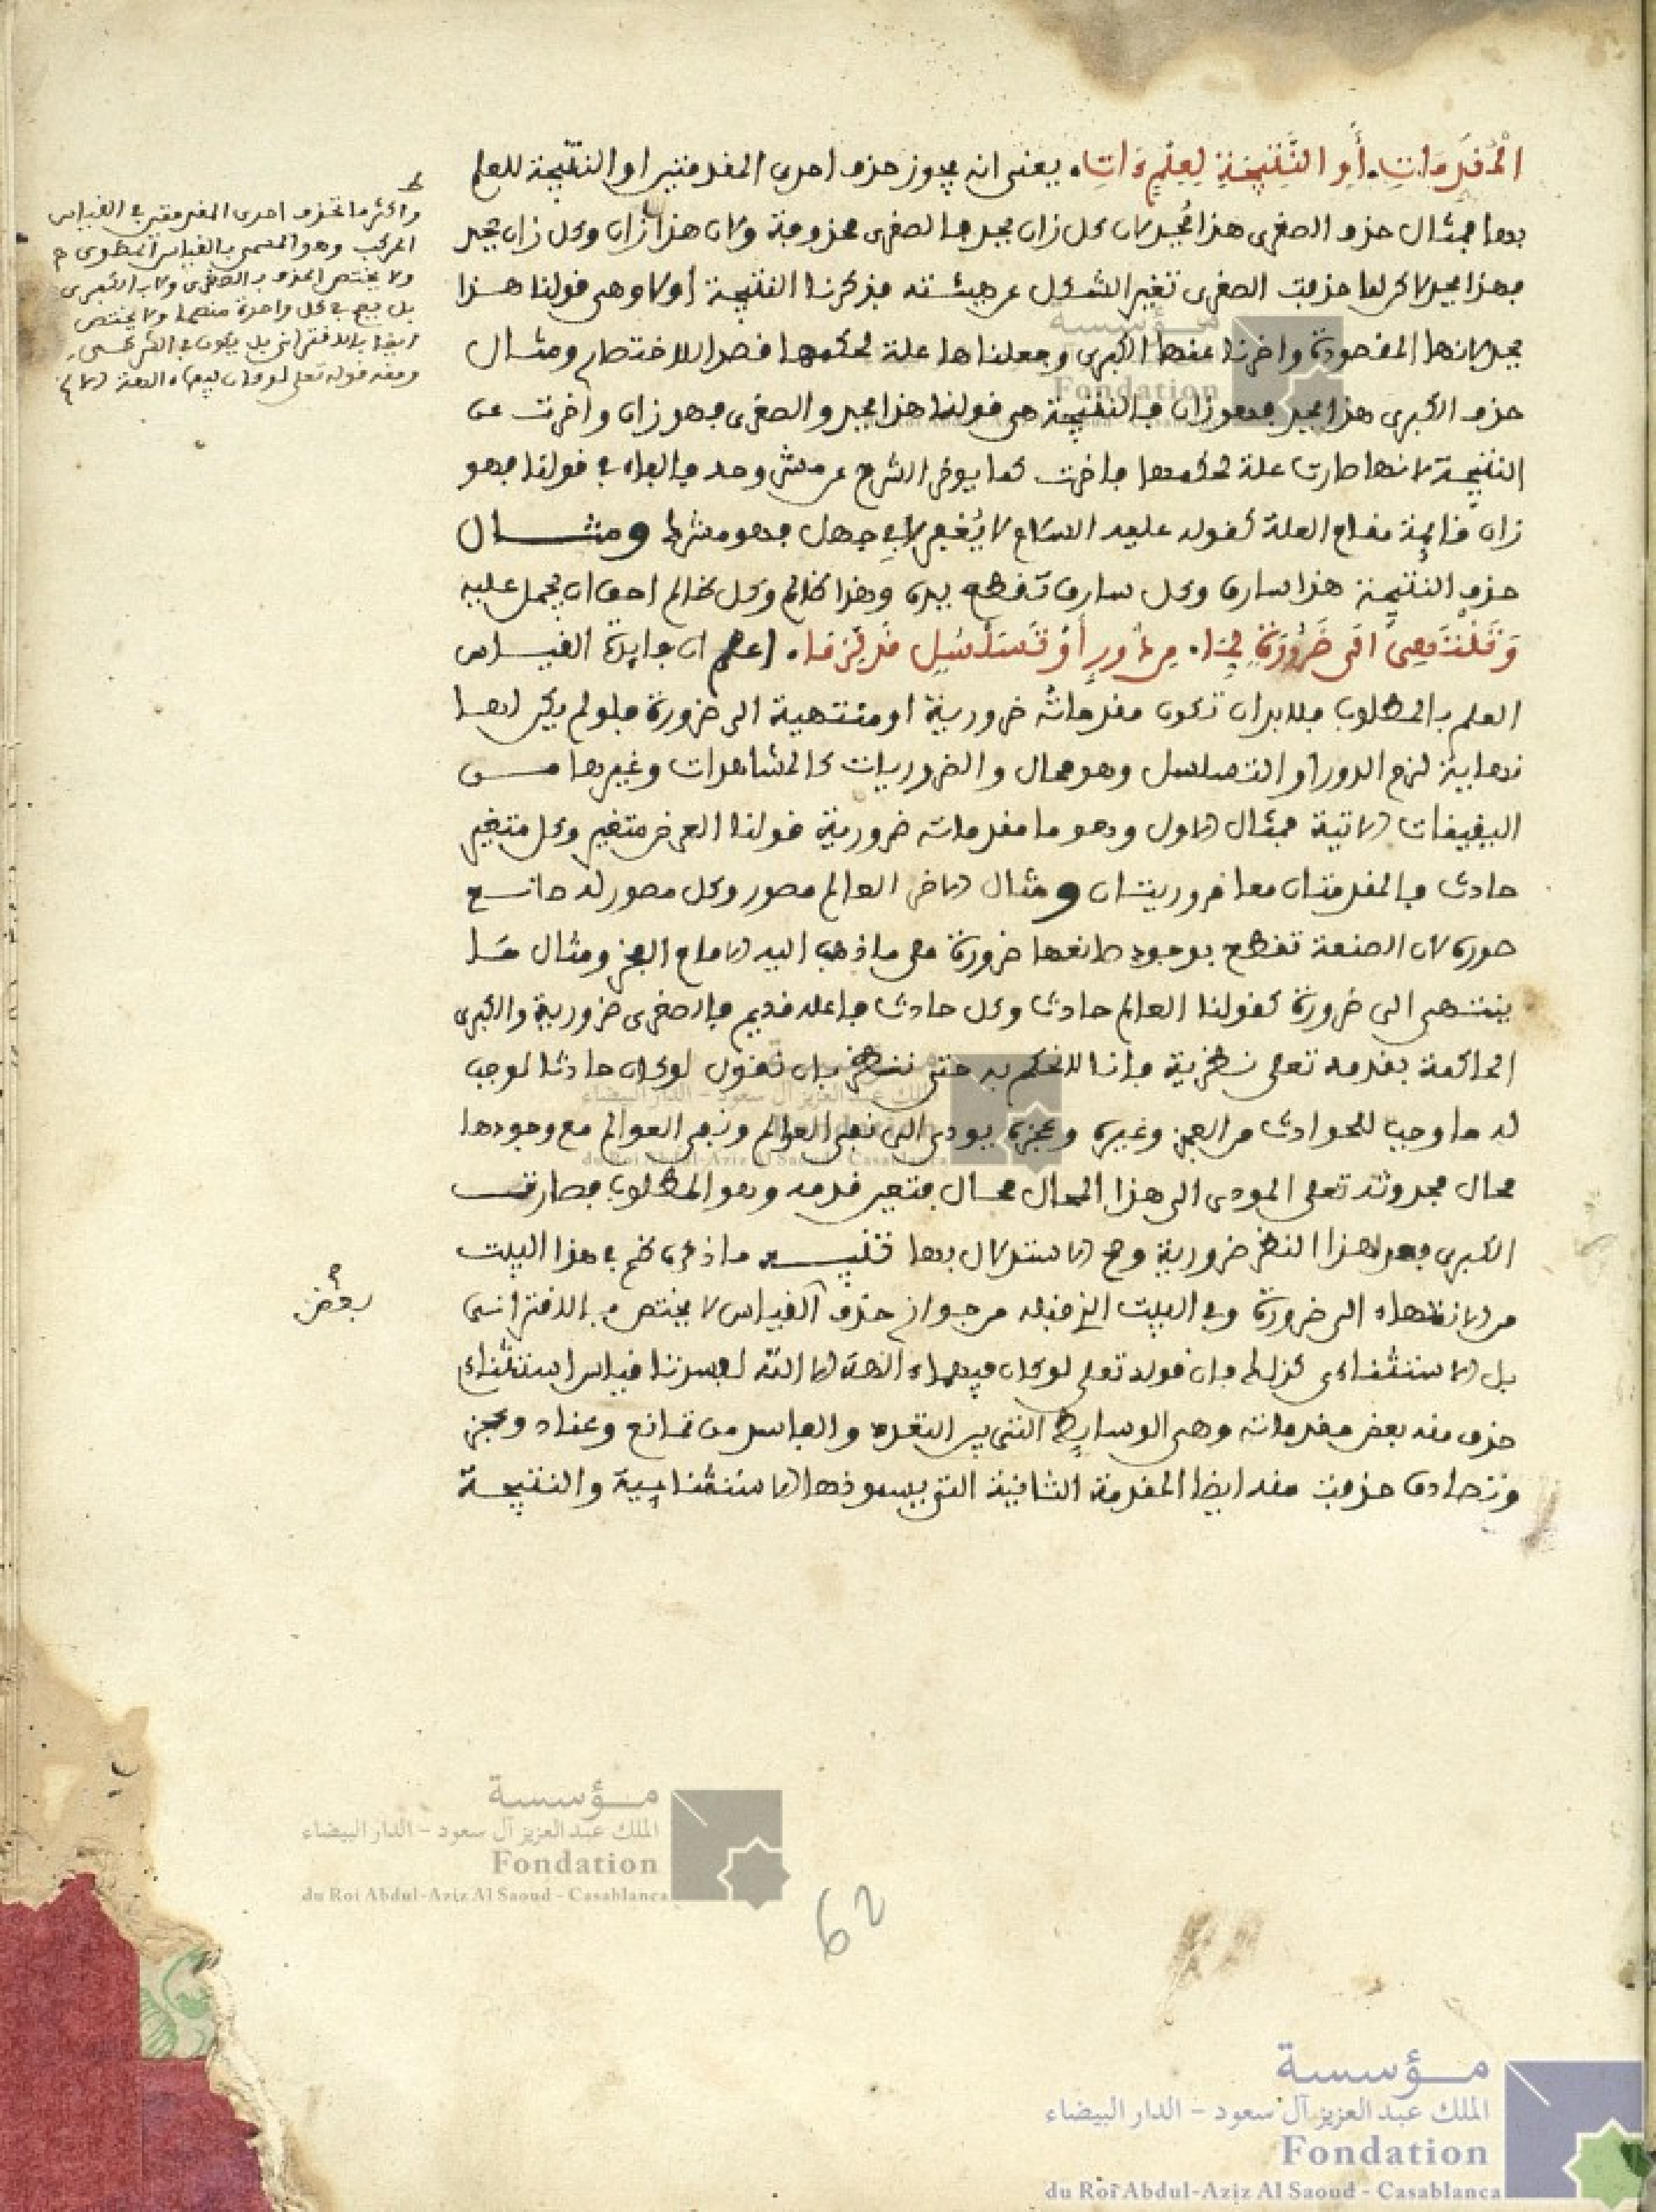 المقدمات أو النتيجة لعلم ءات يعنى انه يجوز حذف احدى المقدمتين او النتيجة للعلم
بها فمثال حذف الصغرى هذا يحد لان كل زان يحد فالصغرى محذوفة ولان هذا زان وكل زان يحد
فهذا يحد لاكن لما حذفت الصغرى تغير الشكل عن هيئته فذكرنا النتيجة أولا وهى قولنا هذا
يحد لانها المقصودة واخرنا عنها الكبرى وجعلناها علة لحكمها قصدا للاختصار ومثال
حذف الكبرى هذا يحد فهو زان فالنتيجة هى قولنا هذا يحد والصغرى فهو زان واخرت عن
النتيجة لانها صارت علة لحكمها فاخرت كما يوخر الشرح عن مشروحه والفاء في قولنا فهو
زان قائمة مقام العلة كقوله عليه السلام لا يُغنى لابي جهل فهو مشرك ومثال
حذف النتيجة هذا سارق وكل سارق تقطع يده وهذا ظالم وكل ظالم احق ان يحمل عليه
وَتَنْتَهِى الَى ضَرُورَةٍ لِمَا مِن دَوْرٍ أَوْ تَسَلْسُلٍ قَدْ لَزِمَا اعلم ان فايدة القياس
العلم بالمطلوب فلابد ان تكون مقدماته ضرورية او منتهية الى ضرورة فلو لم يكن لها
نهاية لزم الدور او التسلسل وهو محال والضروريات كالمشاهدات وغيرها من
اليقينات الاتية فمثال الاول وهو ما مقدماته ضرورية قولنا العرض متغير وكل متغير
حادث فالمقدمتان معا ضروريتان ومثال الاخر العالم مصور وكل مصور له صانع
صوره لان الصنعة تقطع بوجود صانعها ضرورة على ما ذهب اليه الامام الفخر ومثال ما
ينتهى الى ضرورة كقولنا العالم حادث وكل حادث فاعله قديم فالصغرى ضرورية والكبرى
الحاكمة بقدمه تعلى نظرية فانا لا نحكم به حتى ننظر بان نقول لو كان حادثا لوجب
له ما وجب للحوادث من العجز وغيره وعجزه يودى الى نفى العوالم ونفى العوالم مع وجودها
محال فحدوثه تعلى المودى الى هذا المحال محال فتعين قدمه وهو المطلوب فصارت
الكبرى بعد هذا النظر ضرورية وصح الاستدلال بها تنبيه ما ذكره نظم في هذا البيت
من الانتهاء الى ضرورة وفي البيت الذى قبله من جواز حذف القياس لا يختص بالاقترانى
بل الاستثناءى كذلك فان قوله تعلى لو كان فيهماء الهة الا الله لفسدتا قياس استثناء
حذف منه بعض مقدماته وهى الوسايط التى بين التعدد والفاسد من تمانع وعناد وعجز
وتصادم حذفت منه ايضا المقدمة الثانية التى يسمونها الاستثنايية والنتيجة
واكثر ما تحذف احدى المقدمتين في القياس
المركب وهو المسمى بالقياس المطوى
ولا يختص الحذف بالصغرى ولا بالكبرى
بل يقع في كل واحدة منهما ولا يختص
ايضا بالاقترانى بل يكون في الشرطى
ومنه قوله تعلى لو كان فيهماء الهة الا الله
بعض
62
مؤسسة
الملك عبد العزيز آل سعود - الدار البيضاء
Fondation
du Roi Abdul-Aziz Al Saoud - Casablanca
مؤسسة
الملك عبد العزيز آل سعود - الدار البيضاء
Fondation
du Roi Abdul-Aziz Al Saoud - Casablanca